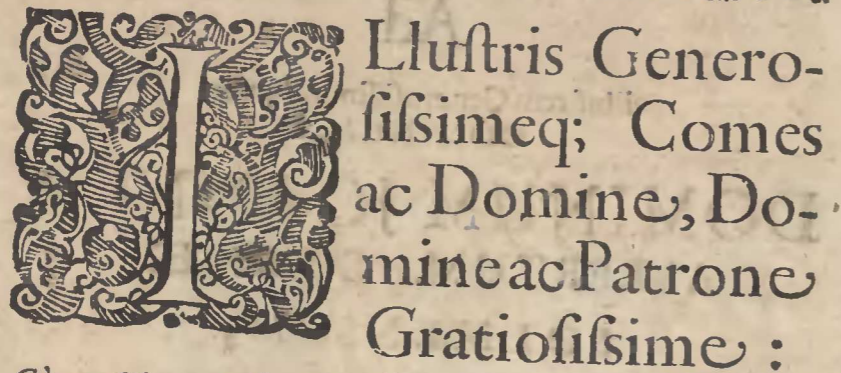 ILluſtris Genero-
ſiſsimeq; Comes
ac Domine, Do-
mine ac Patrone
Gratioſiſsime :